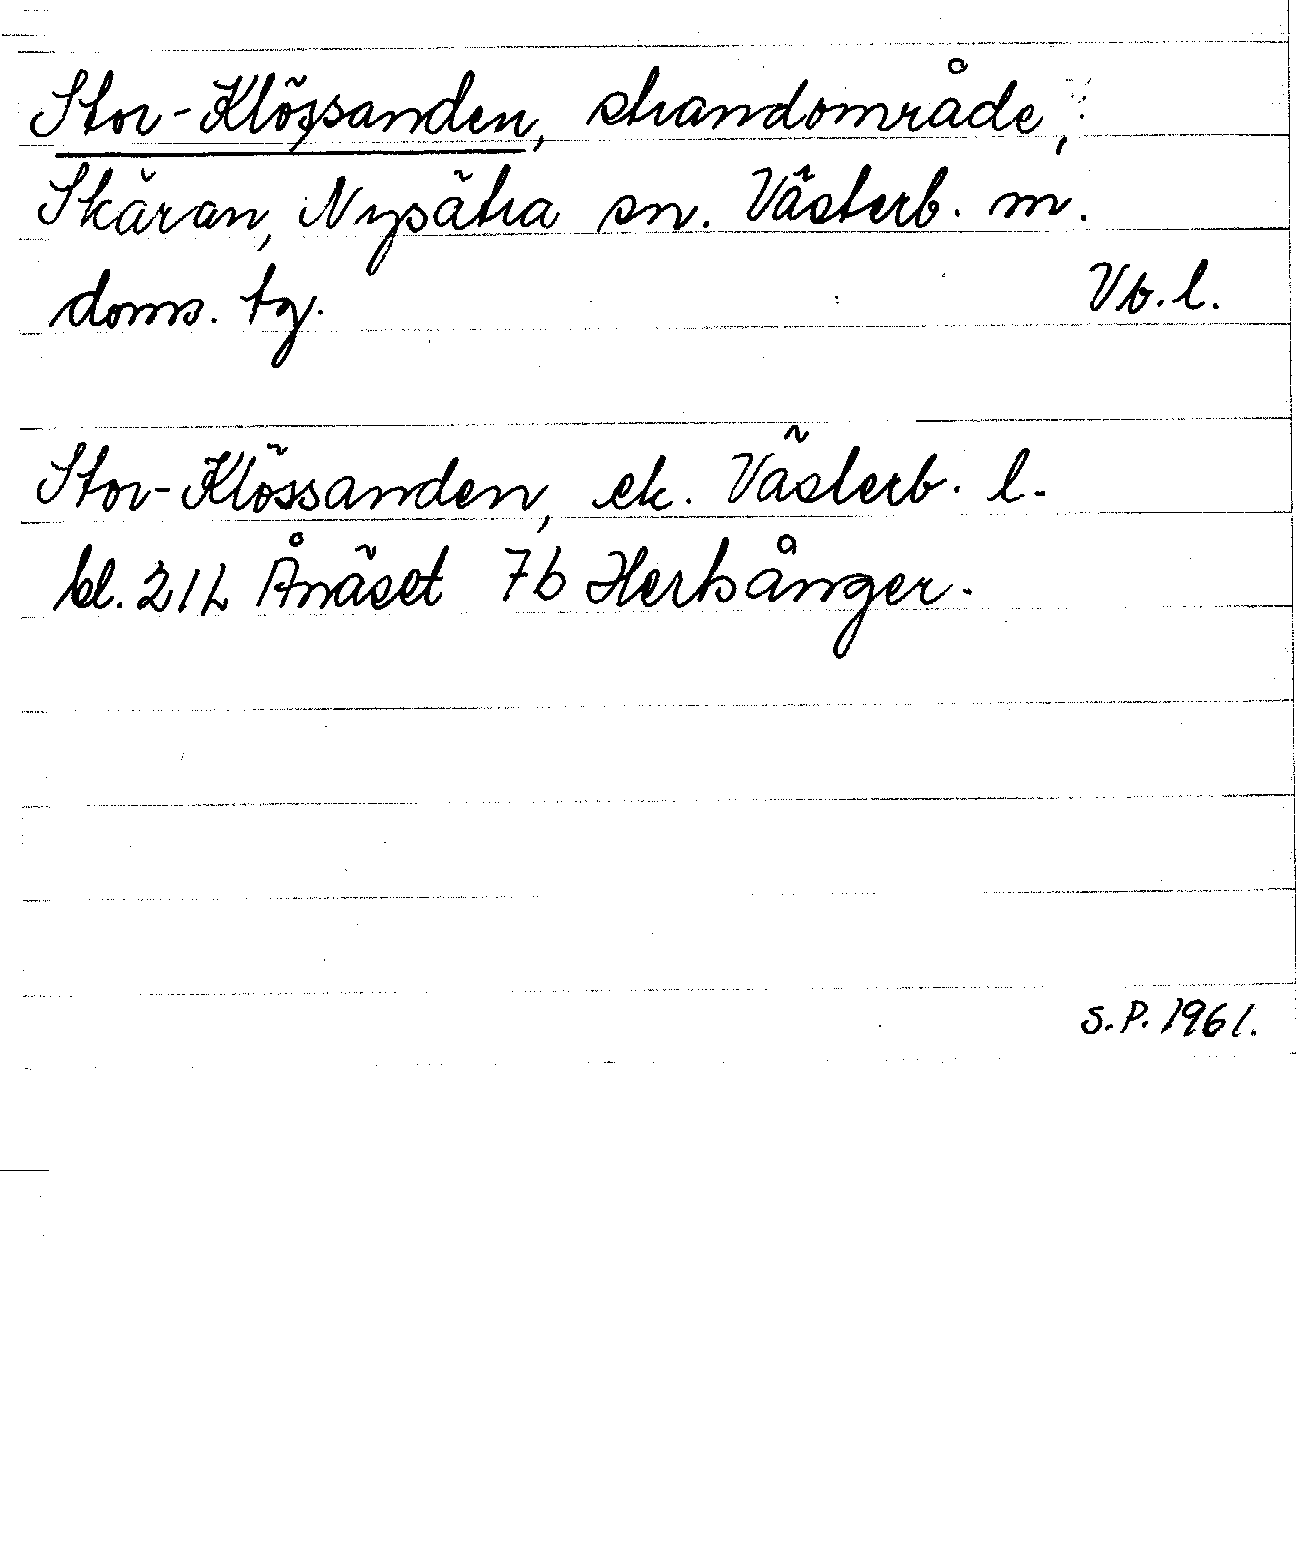 Stor-Klössanden, strandområde,
Skäran, Nysätra sn. Västerb. m.
doms. tg. Vb. l.
Stor-Klössanden, ek. Västerb. l.
bl. 21L Ånäset 7b Hertsånger.
S.P. 1961.